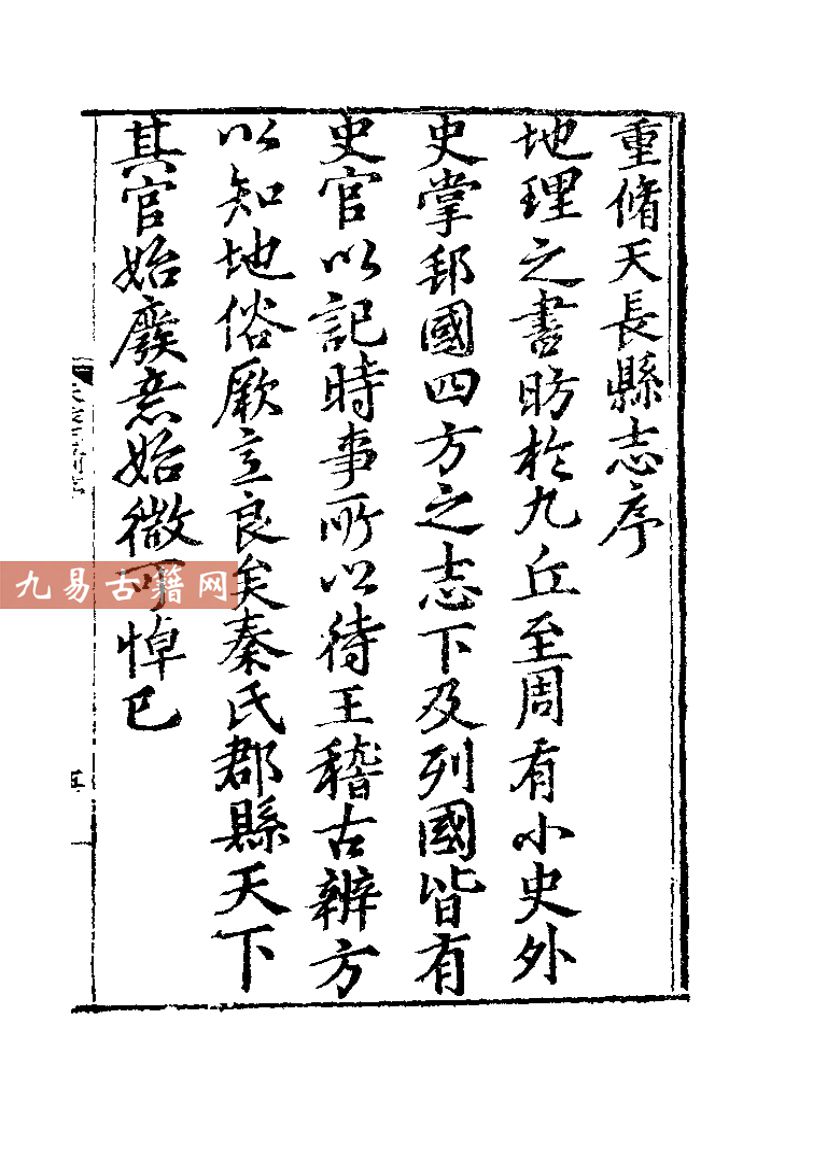 重脩天長縣志序
地理之書昉於九丘至周有小史外
史掌邦國四方之志下及列國皆有
史官以記時事所以待王稽古辨方
以知地俗厥立良矣秦氏郡縣天下
其官始廢意始微可悼已
九易古籍网